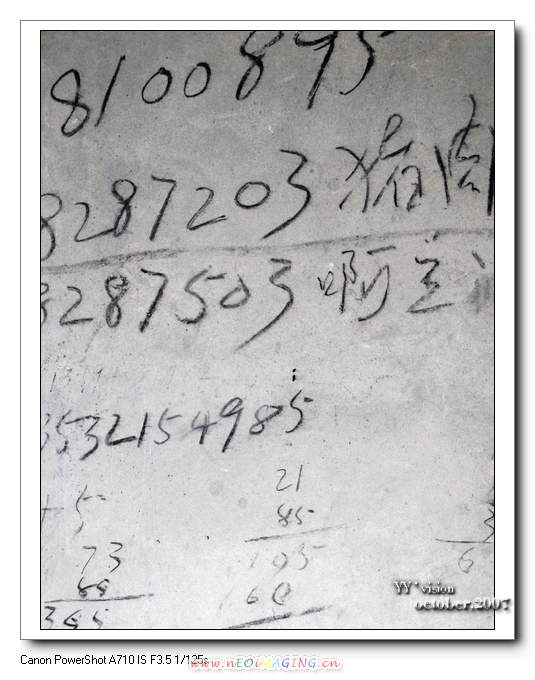 8100895
8287203 猪肉
8287503 啊兰
3532154985
21
85
105
168
73
65
365
6
YY'vision
october.2007
Canon PowerShot A710 IS F3.5 1/125s
www.nEOiMAGING.cn